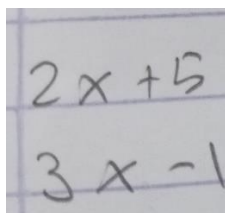 2x+5
3x-1